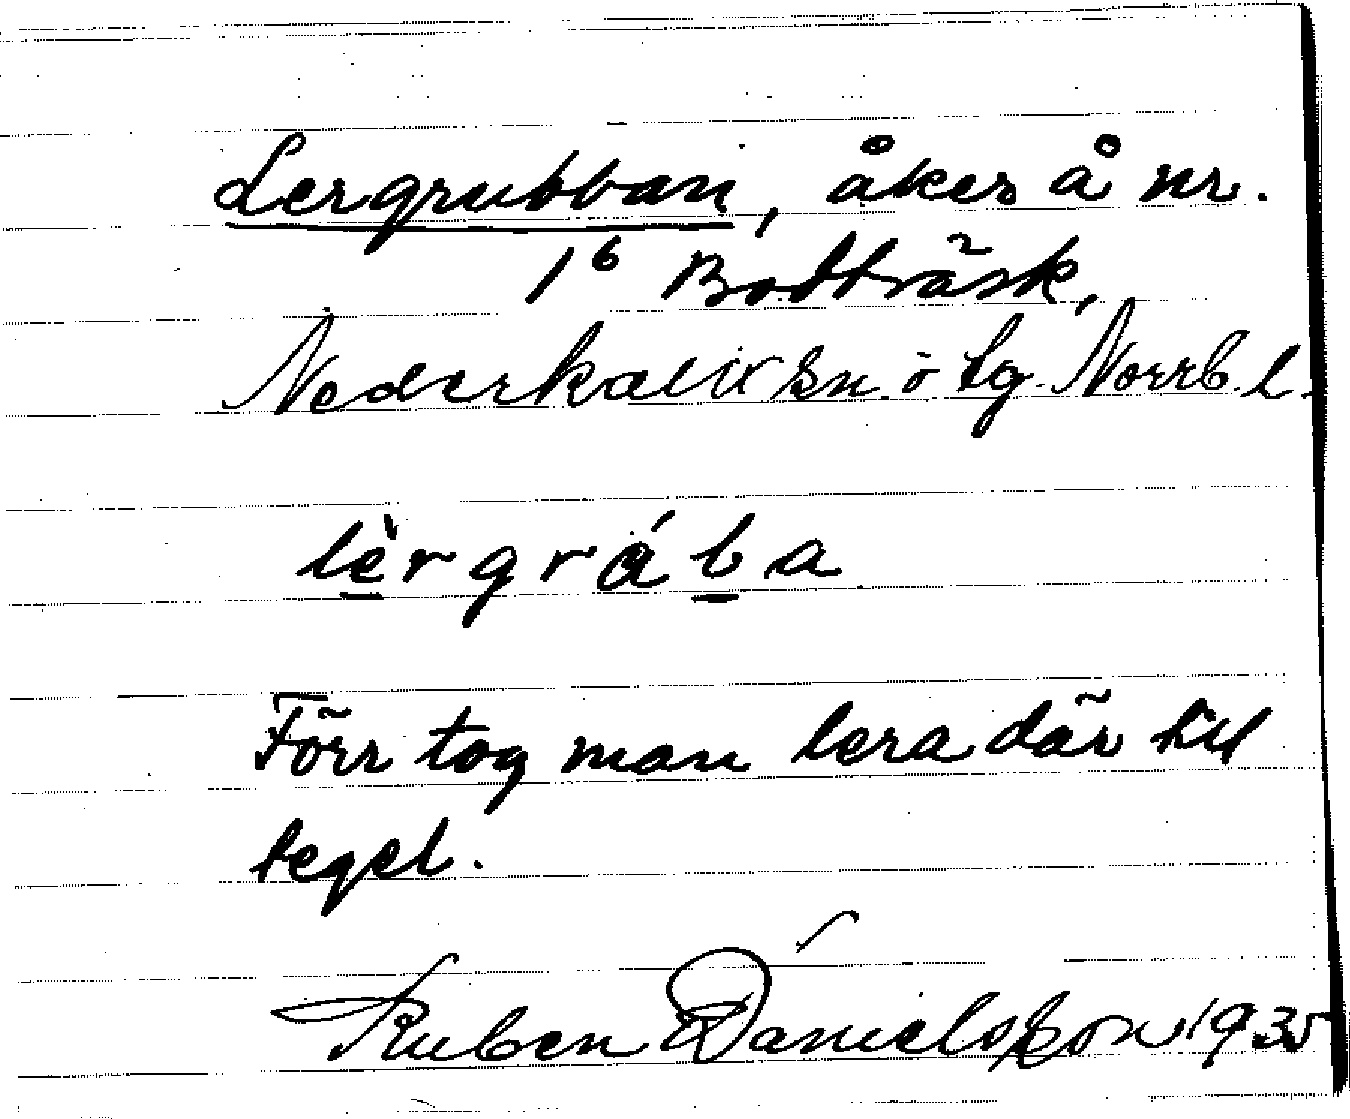 Lergrubban, åker å nr.
1⁶ Bodträsk,
Nederkalix sn. ö tg. Norrb. l.
lèrgrába
Förr tog man lera där till
tegel.
Ruben Danielsson 1935